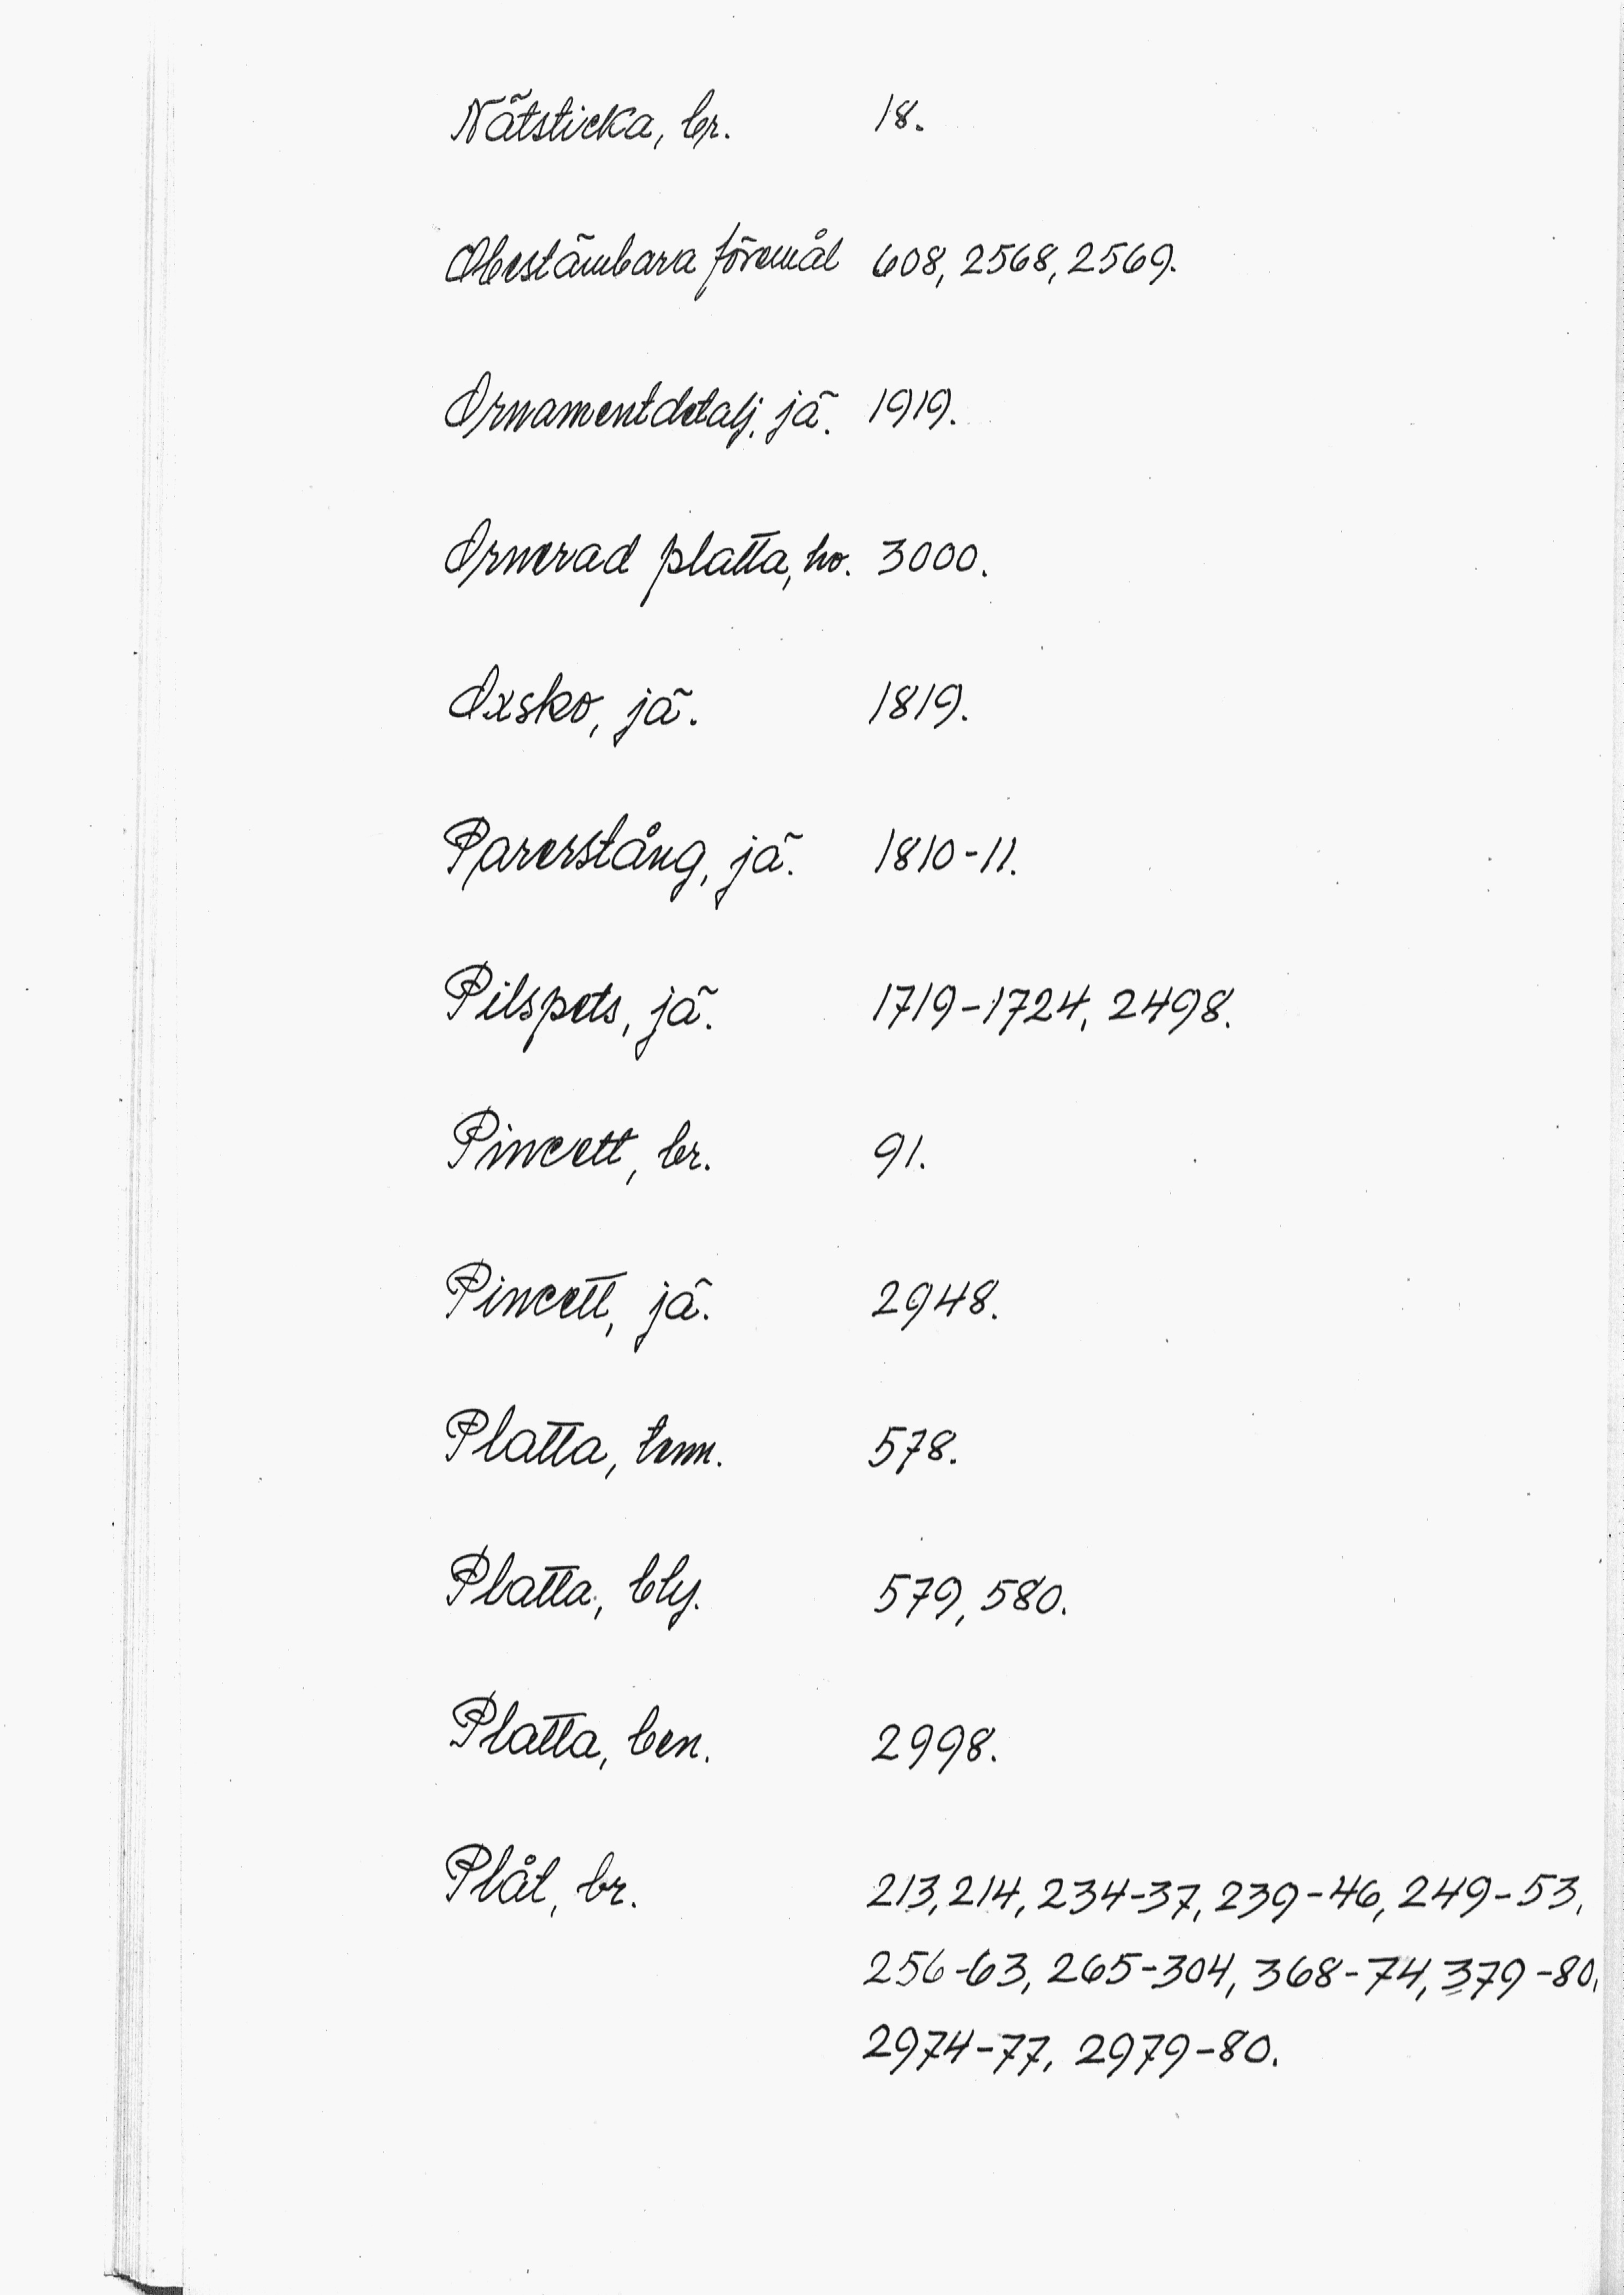 Nätsticka, br. 18.
Obestämbara föremål 608, 2568, 2569.
Ornamentdetalj, jä. 1919.
Ornerad platta, ho. 3000.
Oxsko, jä. 1819.
Parerstång, jä. 1810-11.
Pilspets, jä. 1719-1724, 2498.
Pincett, br. 91.
Pincett, jä. 2948.
Platta, tenn. 578.
Platta, bly. 579, 580.
Platta, ben. 2998.
Plåt, br. 213, 214, 234-37, 239-46, 249-53,
256-63, 265-304, 368-74, 379-80,
2974-77, 2979-80.